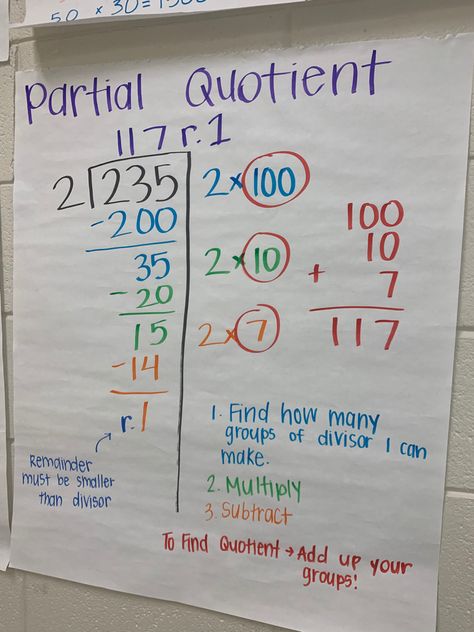 50 × 30 = 1500
Partial Quotient
117 r.1
2 235 2 × 100
-200
35 2 × 10
-20
15 2 × 7
-14
r.1
100
10
+ 7
117
Remainder
must be smaller
than divisor
1. Find how many
groups of divisor I can
make.
2. Multiply
3. Subtract
To Find Quotient → Add up your
groups!